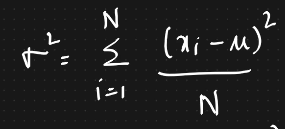 σ² = Σᵢ₌₁ᴺ (xᵢ - μ)² / N